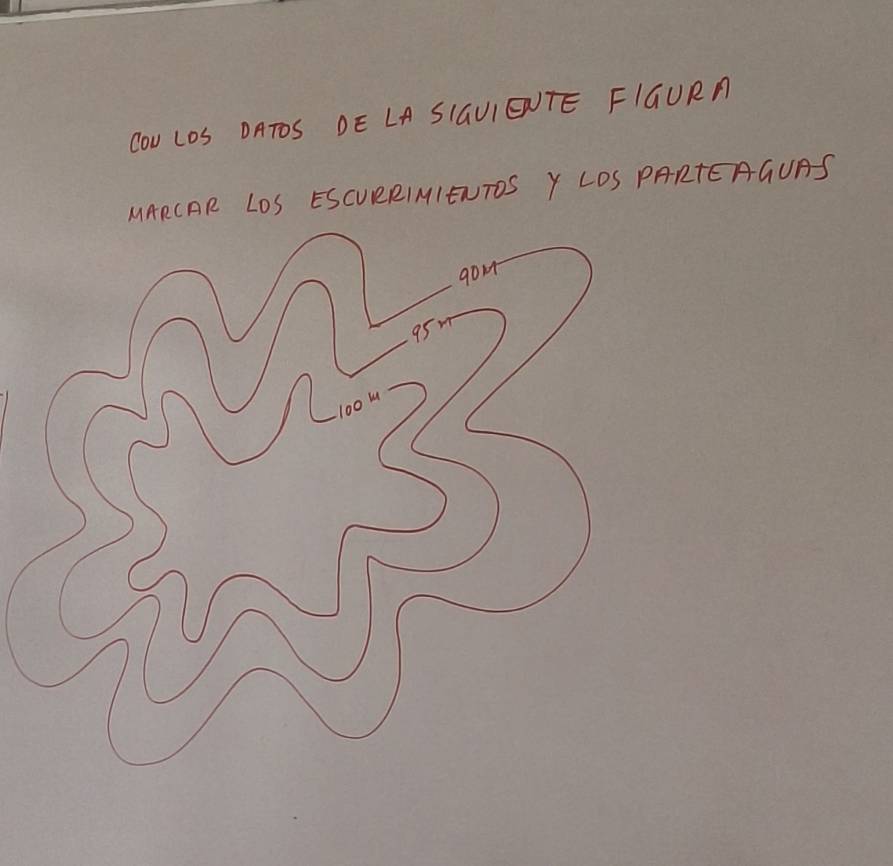 CON LOS DATOS DE LA SIGUIENTE FIGURA
MARCAR LOS ESCURRIMIENTOS Y LOS PARTEAGUAS
90M
95m
100 M